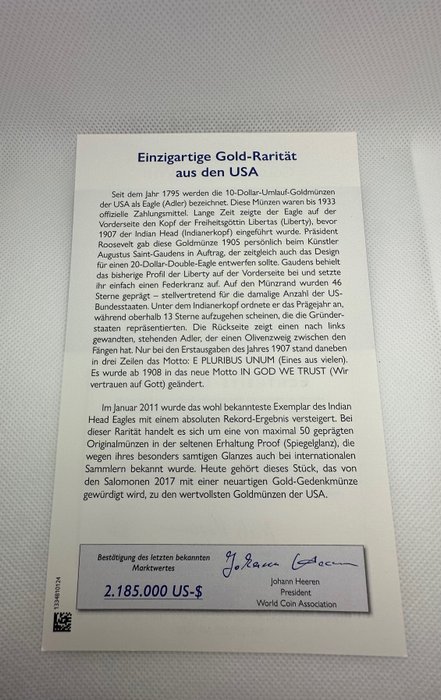 Einzigartige Gold-Rarität
aus den USA
Seit dem Jahr 1795 werden die 10-Dollar-Umlauf-Goldmünzen
der USA als Eagle (Adler) bezeichnet. Diese Münzen waren bis 1933
offizielle Zahlungsmittel. Lange Zeit zeigte der Eagle auf der
Vorderseite den Kopf der Freiheitsgöttin Libertas (Liberty), bevor
1907 der Indian Head (Indianerkopf) eingeführt wurde. Präsident
Roosevelt gab diese Goldmünze 1905 persönlich beim Künstler
Augustus Saint-Gaudens in Auftrag, der zeitgleich auch das Design
für einen 20-Dollar-Double-Eagle entwerfen sollte. Gaudens behielt
das bisherige Profil der Liberty auf der Vorderseite bei und setzte
ihr einfach einen Federkranz auf. Auf den Münzrand wurden 46
Sterne geprägt – stellvertretend für die damalige Anzahl der US-
Bundesstaaten. Unter dem Indianerkopf ordnete er das Prägejahr an,
während oberhalb 13 Sterne aufzugehen scheinen, die die Gründer-
staaten repräsentierten. Die Rückseite zeigt einen nach links
gewandten, stehenden Adler, der einen Olivenzweig zwischen den
Fängen hat. Nur bei den Erstausgaben des Jahres 1907 stand daneben
in drei Zeilen das Motto: E PLURIBUS UNUM (Eines aus vielen).
Es wurde ab 1908 in das neue Motto IN GOD WE TRUST (Wir
vertrauen auf Gott) geändert.
Im Januar 2011 wurde das wohl bekannteste Exemplar des Indian
Head Eagles mit einem absoluten Rekord-Ergebnis versteigert. Bei
dieser Rarität handelt es sich um eine von maximal 50 geprägten
Originalmünzen in der seltenen Erhaltung Proof (Spiegelglanz), die
wegen ihres besonders samtigen Glanzes auch bei internationalen
Sammlern bekannt wurde. Heute gehört dieses Stück, das von
den Salomonen 2017 mit einer neuartigen Gold-Gedenkmünze
gewürdigt wird, zu den wertvollsten Goldmünzen der USA.
Bestätigung des letzten bekannten
Marktwertes
2.185.000 US-$
Johann Heeren
Johann Heeren
President
World Coin Association
1334810124